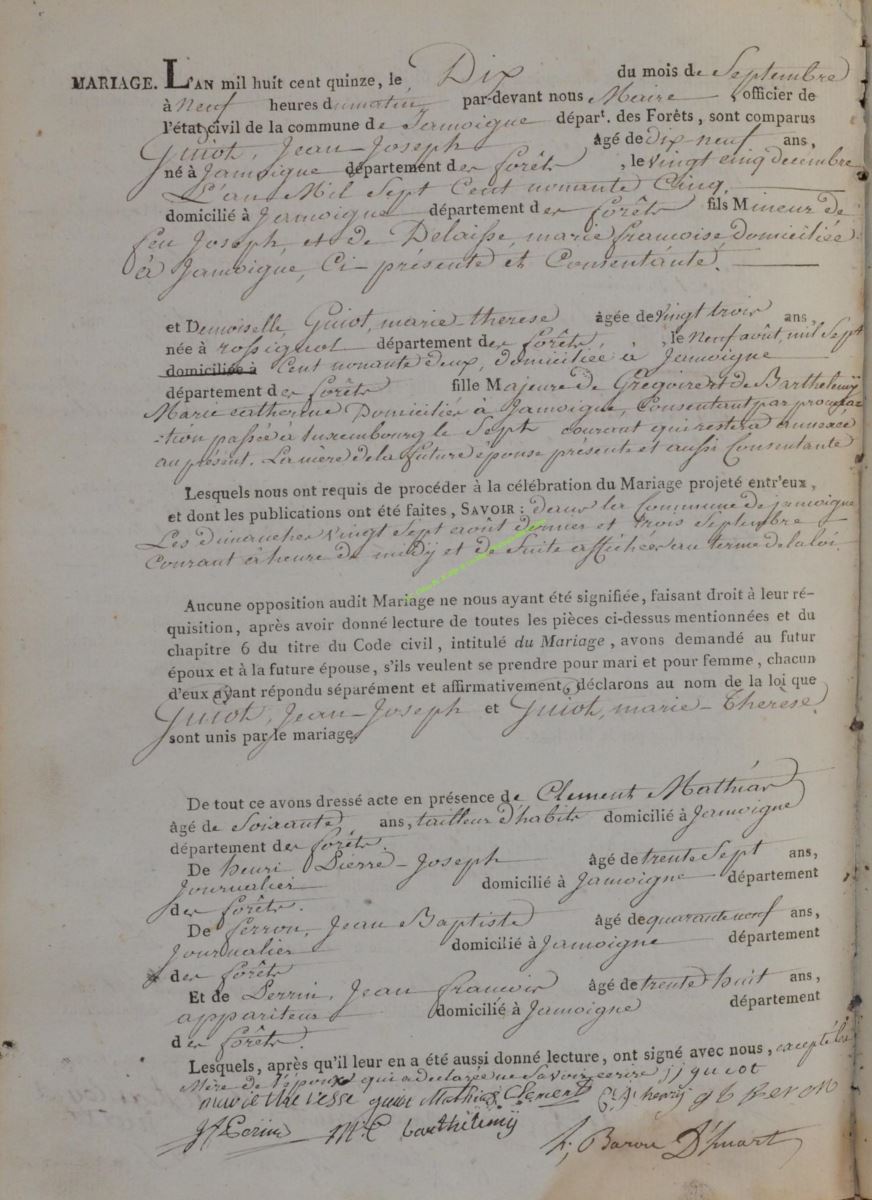 MARIAGE. L'AN mil huit cent quinze, le Dix du mois de Septembre
à Neuf heures du matin par-devant nous Maire, officier de
l'état civil de la commune de Jamoigne dépar.t des Forêts, sont comparus
Guiot, Jean-Joseph âgé de dix-neuf ans,
né à Jamoigne département des forêts, le vingt cinq decembre
L'an Mil Sept Cent nonante Cinq.
domicilié à Jamoigne département des forêts fils Mineur de
feu Joseph et de Delaisse, marie francoise, domiciliée
à Jamoigne, Ci-présente et Consentante.
et Demoiselle Guiot, marie-therese âgée de vingt trois ans,
née à rossignol département des forêts, le Neuf août, mil Sept
domiciliée à Cent nonante deux, domiciliée à Jamoigne
département des forêts fille Majeure de Grégoire et de Barthelemÿ
Marie catherine Domiciliés à Jamoigne, Consentant par procura
-tion passée à Luxembourg le Sept courant qui restera annexée
au présent. La mere de la future épouse présente et aussi Consentante
Lesquels nous ont requis de procéder à la célébration du Mariage projeté entr'eux,
et dont les publications ont été faites, SAVOIR : dans la Commune de jamoigne
Les dimanches vingt Sept août dernier et trois Septembre
Courant à heure de midÿ et de Suite affichées au terme de la loi.
Aucune opposition audit Mariage ne nous ayant été signifiée, faisant droit à leur ré-
quisition, après avoir donné lecture de toutes les pièces ci-dessus mentionnées et du
chapitre 6 du titre du Code civil, intitulé du Mariage, avons demandé au futur
époux et à la future épouse, s'ils veulent se prendre pour mari et pour femme, chacun
d'eux ayant répondu séparément et affirmativement, déclarons au nom de la loi que
Guiot, Jean-Joseph et Guiot, marie-Therèse
sont unis par le mariage.
De tout ce avons dressé acte en présence de Clement Mathias
âgé de Soixante ans, tailleur d'habits domicilié à Jamoigne
département des forêts.
De henri Pierre-Joseph âgé de trente Sept ans,
Journalier domicilié à Jamoigne département
des forêts.
De Perron, Jean Baptiste âgé de quarante neuf ans,
Journalier domicilié à Jamoigne département
des forêts
Et de Perrin, Jean francois âgé de trente huit ans,
appariteur domicilié à Jamoigne département
des forêts.
Lesquels, après qu'il leur en a été aussi donné lecture, ont signé avec nous, excepté la
Mere de l'époux qui a declaré ne Savoir ecrire jj guiot
Mathias Clement henrÿ
M C barthélemÿ Baron D'huart